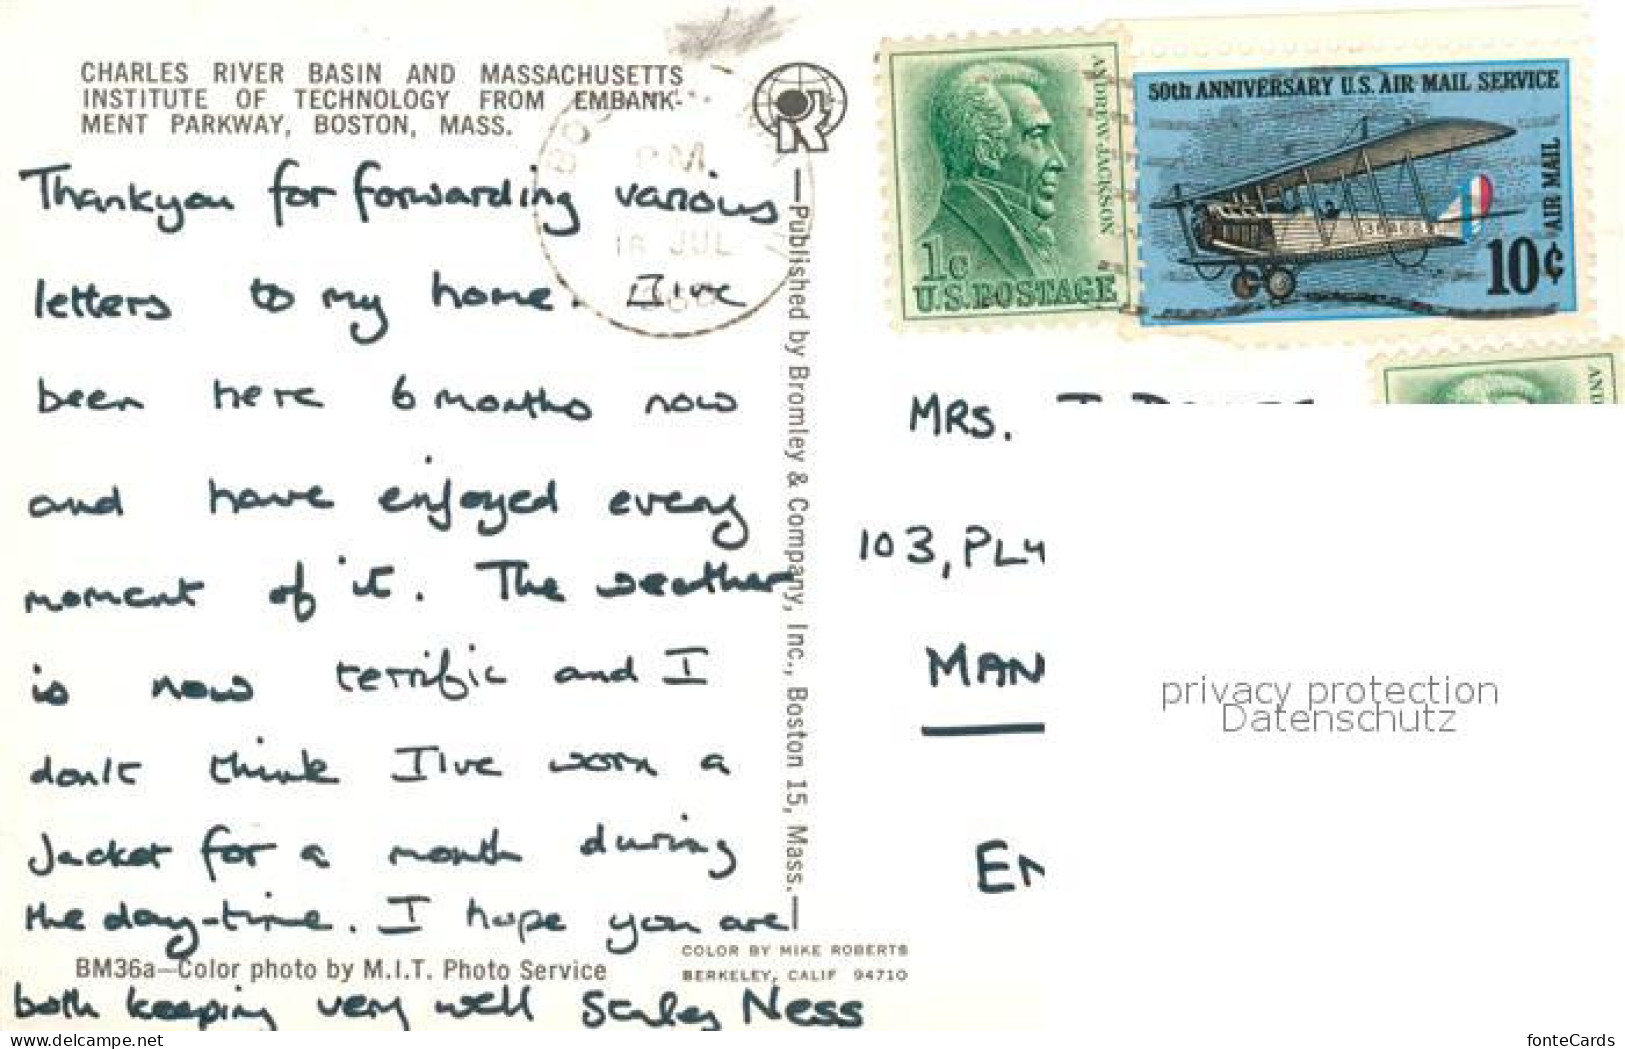 CHARLES RIVER BASIN AND MASSACHUSETTS
INSTITUTE OF TECHNOLOGY FROM EMBANK-
MENT PARKWAY, BOSTON, MASS.
Thankyou for forwarding various
letters to my home. I've
been here 6 months now
and have enjoyed every
moment of it. The weather
is now terrific and I
don't think I've worn a
Jacket for a month during
the day-time. I hope you are
BM36a—Color photo by M.I.T. Photo Service
both keeping very well Ness
COLOR BY MIKE ROBERTS
BERKELEY, CALIF 94710
—Published by Bromley & Company, Inc., Boston 15, Mass.—
P.M.
JUL
ANDREW JACKSON
1c
U.S. POSTAGE
50th ANNIVERSARY U.S. AIR MAIL SERVICE
AIR MAIL
10¢
AND
MRS.
103, PLY
MAN
EN
privacy protection
Datenschutz
www.delcampe.net
fonteCards